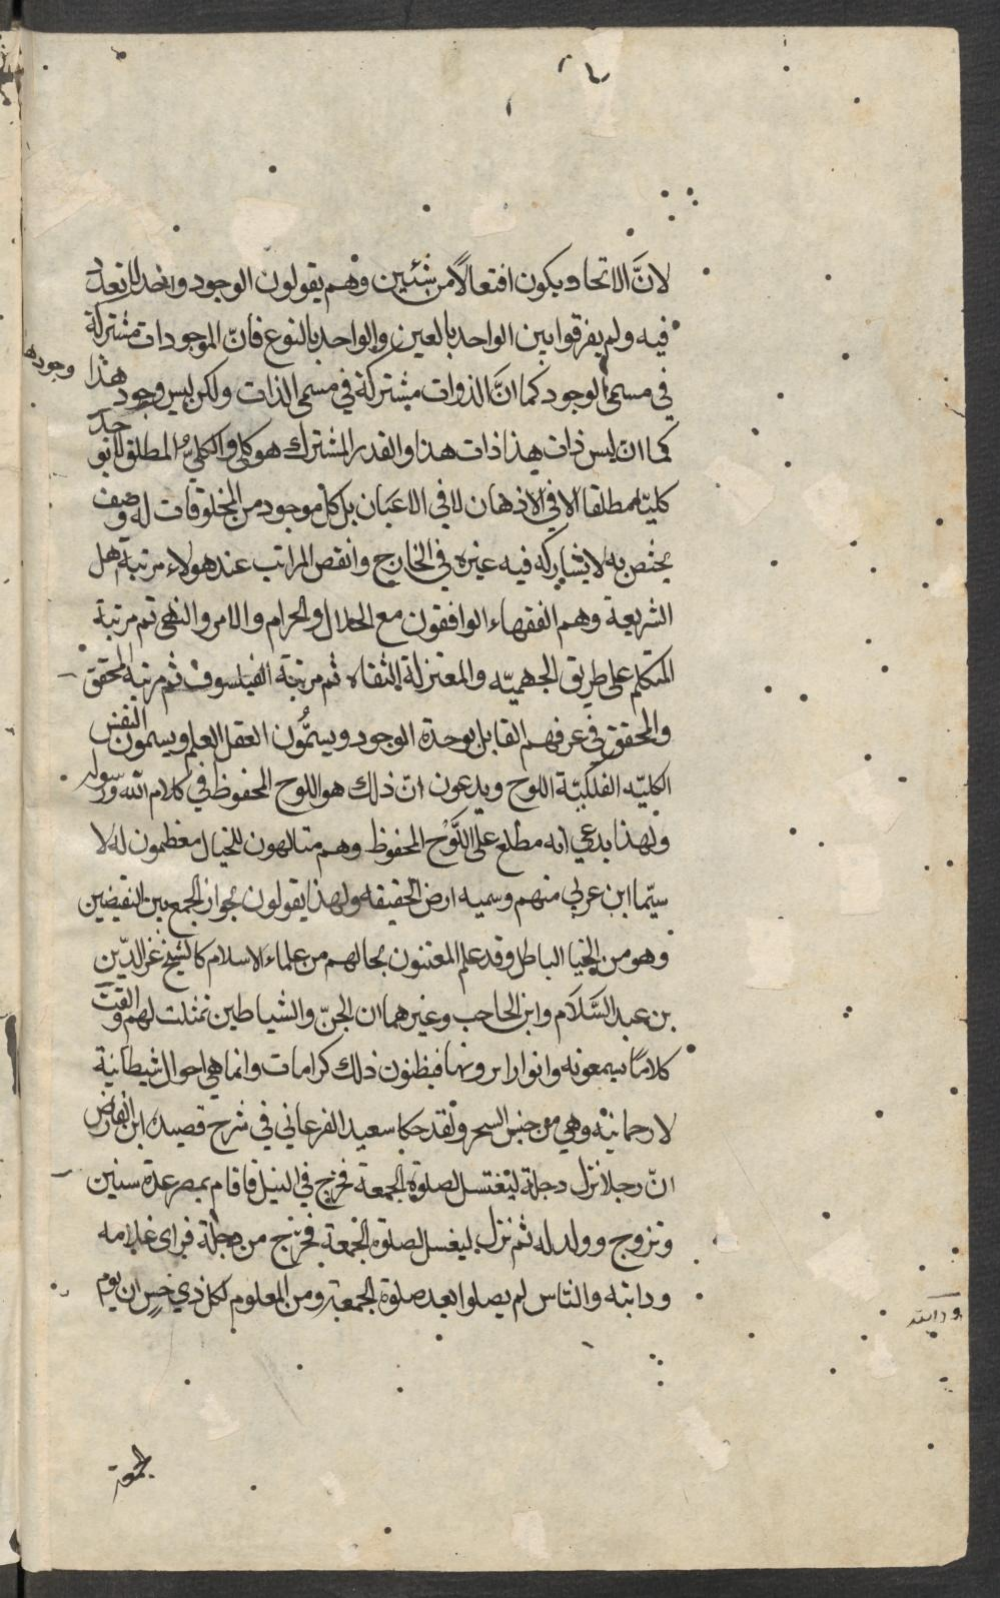 لانَّ الاتحاد يكون افتعالاً من شئين وهم يقولون الوجود واحد لا تعدد
فيه ولم يفرقوا بين الواحد بالعين والواحد بالنوع فانّ الموجودات مشتركة
في مسمى الوجود كما انَّ الذوات مشتركة في مسمى الذات ولكن ليس وجود هذا
وجود هذا
كما ان ليس ذات هذا ذات هذا والقدر المشترك هو كلي والكلي المطلق لا يوجد
كليا مطلقا الا في الاذهان لا في الاعيان بل كل موجود من المخلوقات له وصف
يختص به لا يشاركه فيه غيره في الخارج وانقص المراتب عند هولاء مرتبة اهل
الشريعة وهم الفقهاء الواقفون مع الحلال والحرام والامر والنهى ثم مرتبة
المتكلم على طريق الجهميّه والمعتزلة الثقاه ثم مرتبة الفيلسوف ثم مرتبة المحقق
والمحقق في عرفهم القايل بوحدة الوجود ويسمُّون العقل العلم ويسمون النفس
الكليّه الفلكيّة اللوح ويدعون انّ ذلك هو اللوح المحفوظ في كلام الله ورسوله
ولهذا يدعي انه مطلع على اللَّوْح المحفوظ وهم متالهون للخيال معظمون له لا
سيّما ابن عربي منهم وسميه ارض الحقيقه ولهذا يقولون بجواز الجمع بين النقيضين
وهو من الخيا الباطل وقد علم المعتنون بحالهم من علماء الاسلام كالشيخ عز الدّين
بن عبد السَّلاَم وابن الحاجب وغيرهما ان الجنّ والشياطين تمثلت لهم والقت
كلامًا يسمعونه وانوارا يرونها فيظنون ذلك كرامات وانما هي احوال شيطانية
لا رحمانيّه وهي من جنس السحر ولقد حكا سعيد الفرغاني في شرح قصيدة ابن الفارض
انّ رجلا نزل دجلة ليغتسل لصلوة الجمعة فخرج في النيل فاقام بمصر عدة سنين
وتزوج وولد له ثم نزل ليغسل لصلوة الجمعة فخرج من دجلة فراى غلامه
ودابته والناس لم يصلوا بعد صلوة الجمعة ومن المعلوم لكل ذي حس ان يوم
ودابته
الجمعة